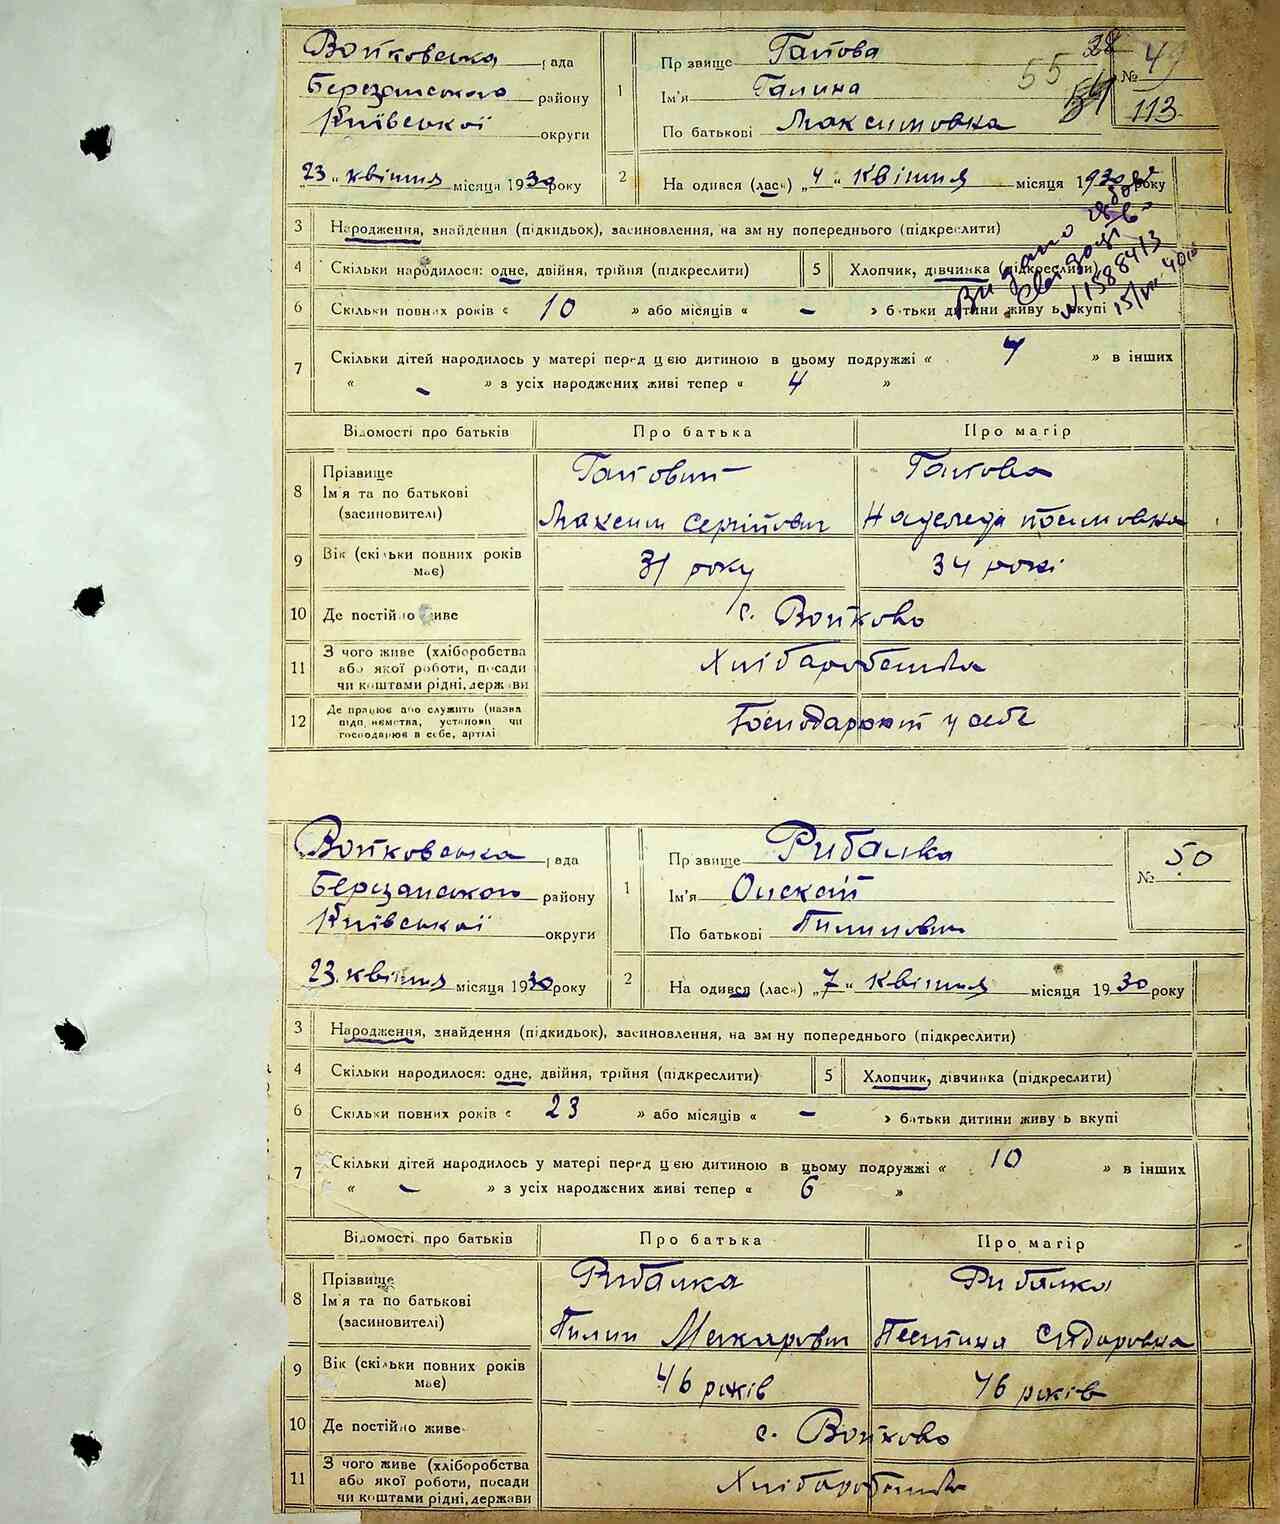 Войковська рада
Березанського району
Київської округи
„23“ квітня місяця 1930 року
1
Прізвище Гапова
Ім'я Галина
По батькові Максимовна
55
№ 49
113
2
На одився (лась) „4“ квітня місяця 1930 року
3 Народження, знайдення (підкидьок), засиновлення, на зм ну попереднього (підкреслити)
4 Скільки народилося: одне, двійня, трійня (підкреслити)
5 Хлопчик, дівчинка (підкреслити)
Видано
№ 1588413
15/VII 40
6 Скільки повних років « 10 » або місяців « – » батьки дитини живуть вкупі
7 Скільки дітей народилось у матері перед цією дитиною в цьому подружжі « 7 » в інших
« – » з усіх народжених живі тепер « 4 »
Відомості про батьків Про батька Про матір
8 Прізвище
Ім'я та по батькові
(засиновителі)
Гапович
Максим Сергійович
Гапова
9 Вік (скільки повних років
має)
31 року
34 рокі
10 Де постійно живе
с. Войково
11 З чого живе (хліборобства
або якої роботи, посади
чи коштами рідні, держави
Хлібаробства
12 Де працює або служить (назва
підприємства, установи чи
господарює в себе, артілі
Господарюют у себе
Войковська рада
Березанського району
Київської округи
23 квітня місяця 1930 року
1
Прізвище Рибалка
Ім'я
По батькові Пилипович
№ 50
2
На одився (лась) „7“ квітня місяця 1930 року
3 Народження, знайдення (підкидьок), засиновлення, на зм ну попереднього (підкреслити)
4 Скільки народилося: одне, двійня, трійня (підкреслити)
5 Хлопчик, дівчинка (підкреслити)
6 Скільки повних років « 23 » або місяців « – » батьки дитини живуть вкупі
7 Скільки дітей народилось у матері перед цією дитиною в цьому подружжі « 10 » в інших
« – » з усіх народжених живі тепер « 6 »
Відомості про батьків Про батька Про матір
8 Прізвище
Ім'я та по батькові
(засиновителі)
Рибалка
Пилип Макарович
Рибалка
Сидаровна
9 Вік (скільки повних років
має)
46 років
46 років
10 Де постійно живе
с. Войково
11 З чого живе (хліборобства
або якої роботи, посади
чи коштами рідні, держави
Хлібаробства